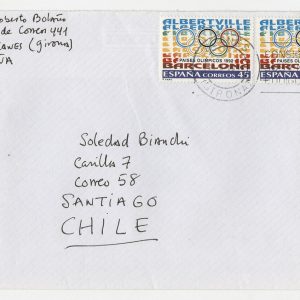 Roberto Bolaño
de Correos 441
ANES (Girona)
ÑA
ALBERTVILLE
PAISES OLIMPICOS 1992
BARCELONA
ESPAÑA CORREOS 45
ALBERTVI
PAISES OLIMPICO
BARCELON
ESPAÑA CORREO
GIRONA
Soledad Bianchi
Casilla 7
Correo 58
SANTIAGO
CHILE